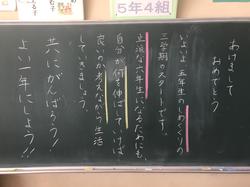 5年4組
あけまして
おめでとう
いよいよ、五年生のしめくくりの
三学期のスタートです。
立派な六年生になるためにも、
自分が何を伸ばしていけば
良いのか考えながら生活
していきましょう。
共にがんばろう!
よい一年にしよう!!